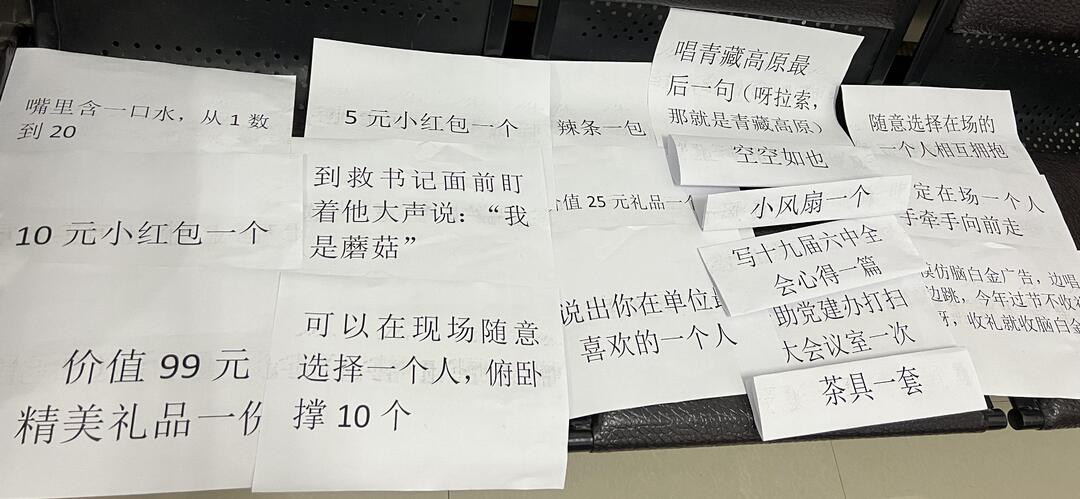 嘴里含一口水，从1数
到20
10元小红包一个
价值99元
精美礼品一份
5元小红包一个
到救书记面前盯
着他大声说：“我
是蘑菇”
可以在现场随意
选择一个人，俯卧
撑10个
辣条一包
价值25元礼品一个
说出你在单位最
喜欢的一个人
唱青藏高原最
后一句（呀拉索，
那就是青藏高原）
空空如也
小风扇一个
写十九届六中全
会心得一篇
助党建办打扫
大会议室一次
茶具一套
随意选择在场的
一个人相互拥抱
定在场一个人
手牵手向前走
模仿脑白金广告，边唱
边跳，今年过节不收礼
呀，收礼就收脑白金